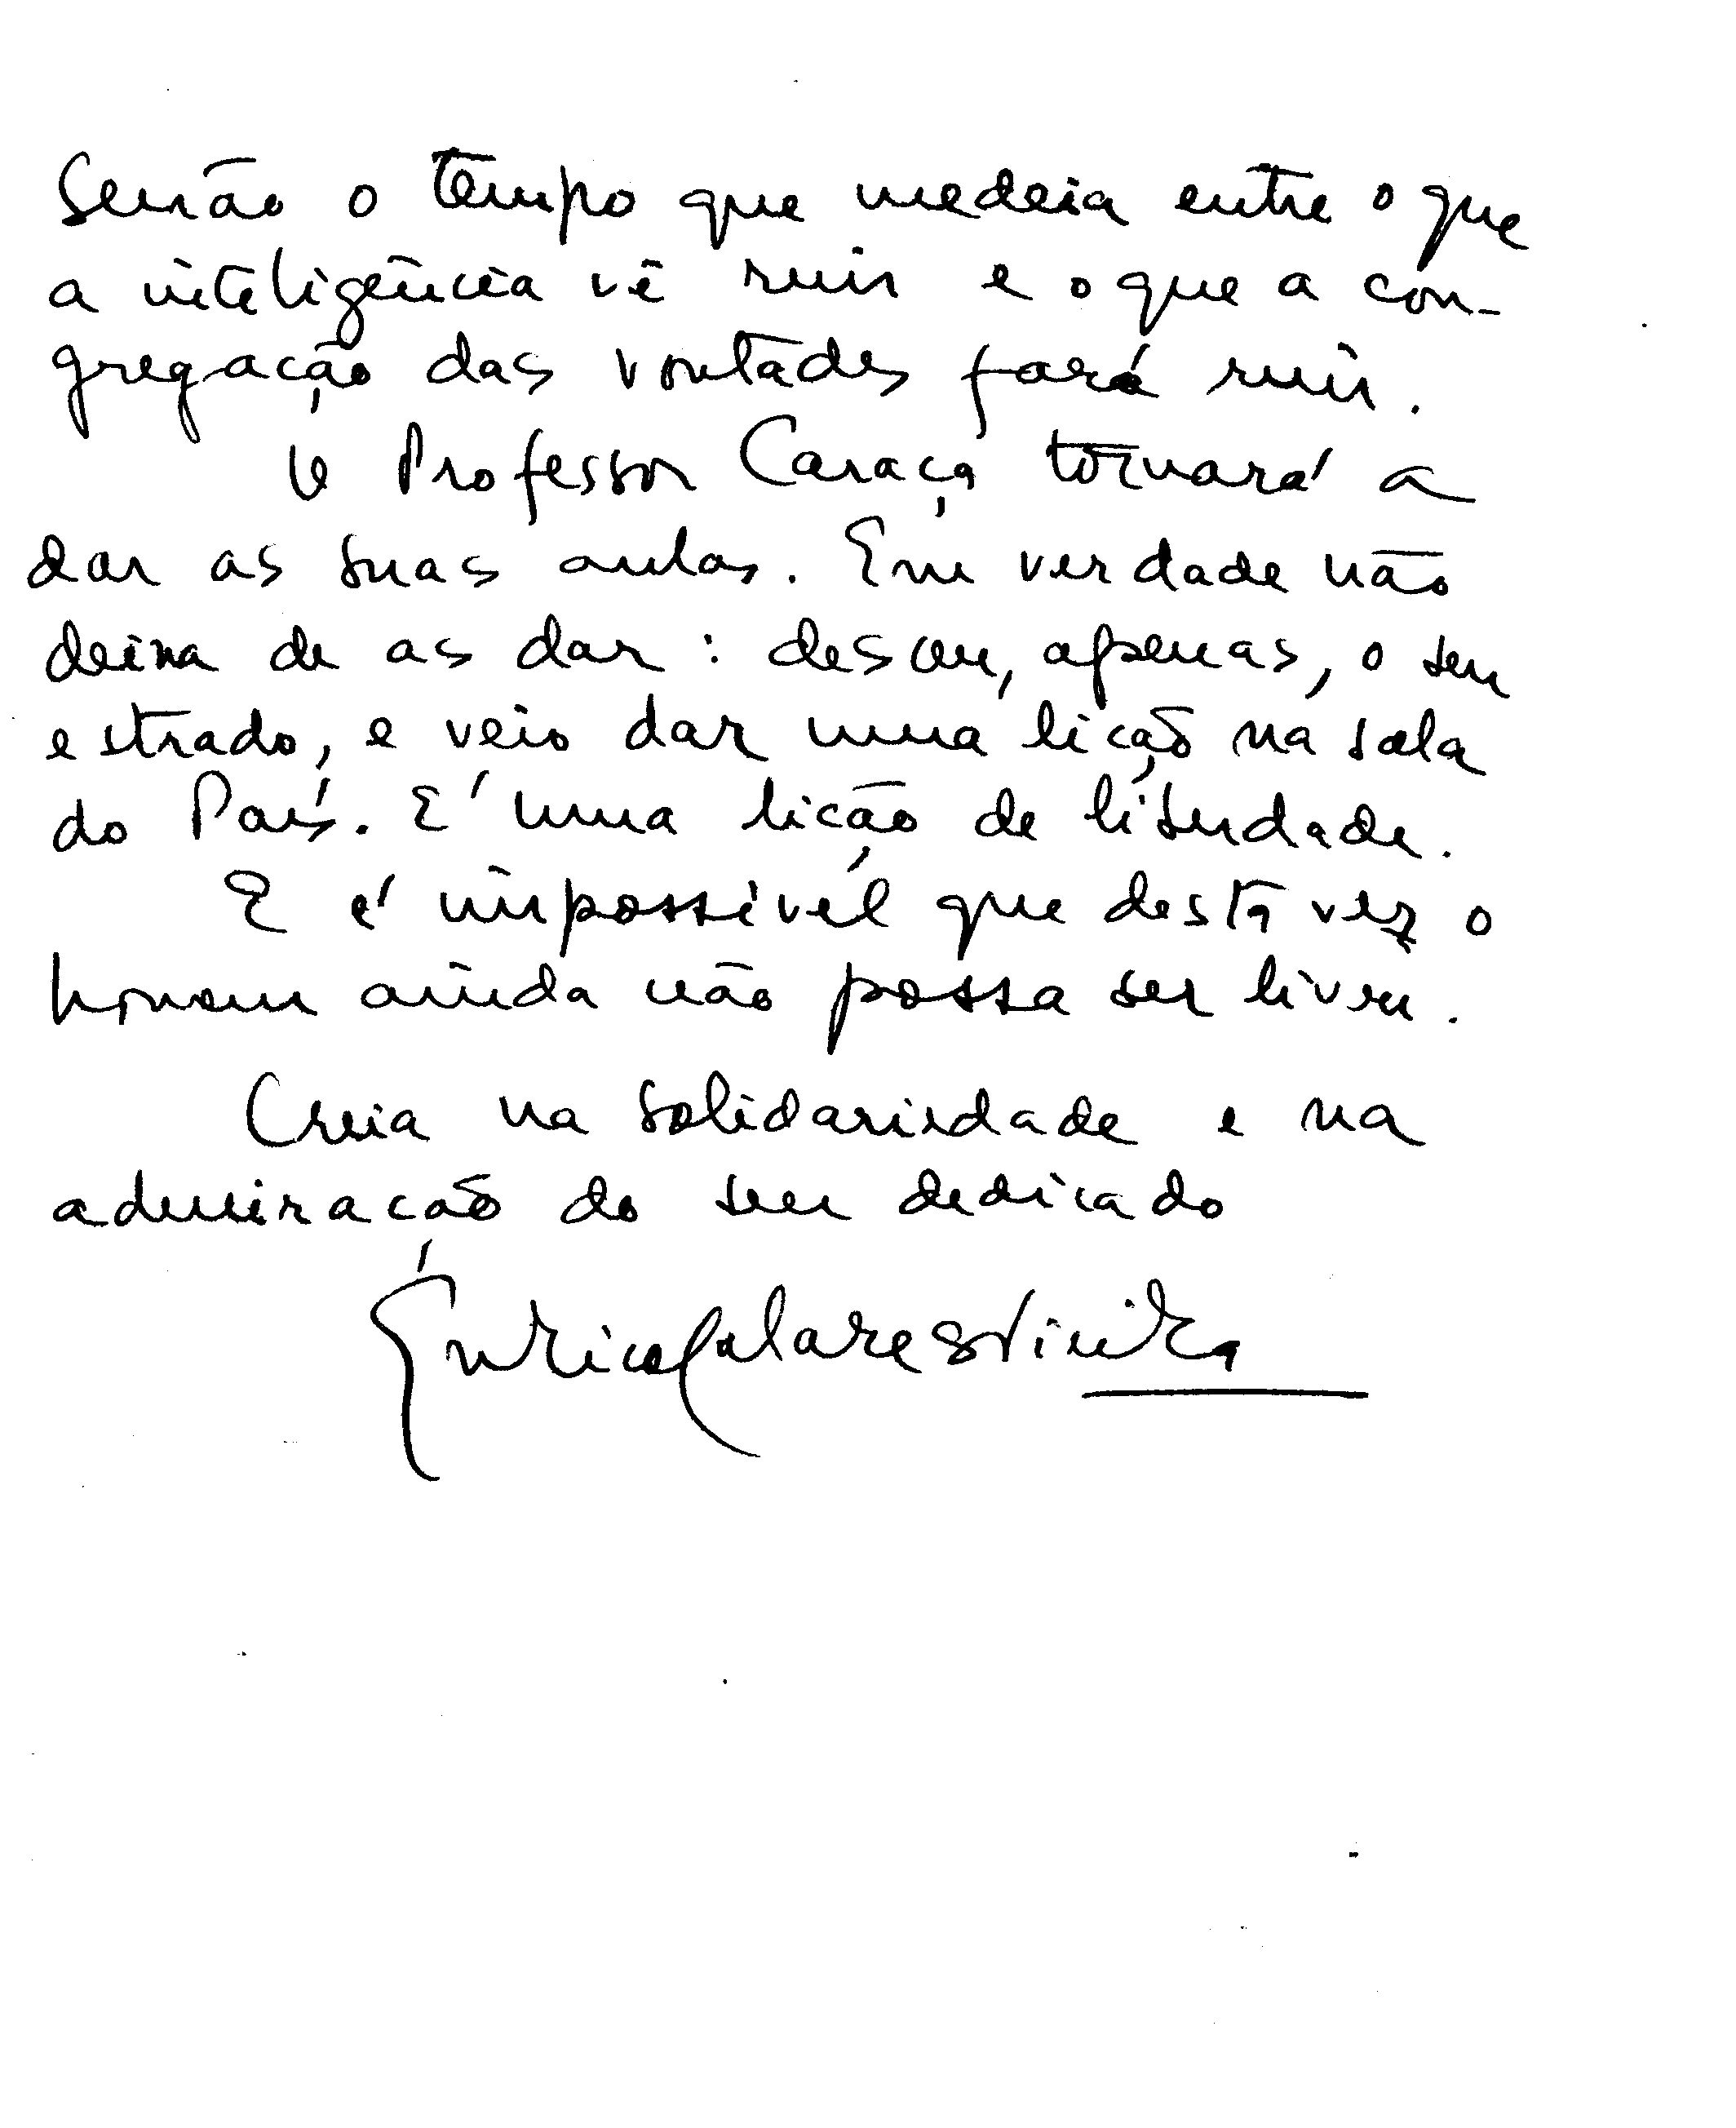 senão o tempo que medeia entre o que
a inteligência vê ruir e o que a con-
gregação das vontades fará ruir.
O Professor Caraça tornará a
dar as suas aulas. Em verdade não
deixa de as dar: desceu, apenas, o seu
estrado, e veio dar uma lição na sala
do País. E' uma lição de liberdade.
E é impossível que desta vez o
homem ainda não possa ser livre.
Creia na solidariedade e na
admiração do seu dedicado